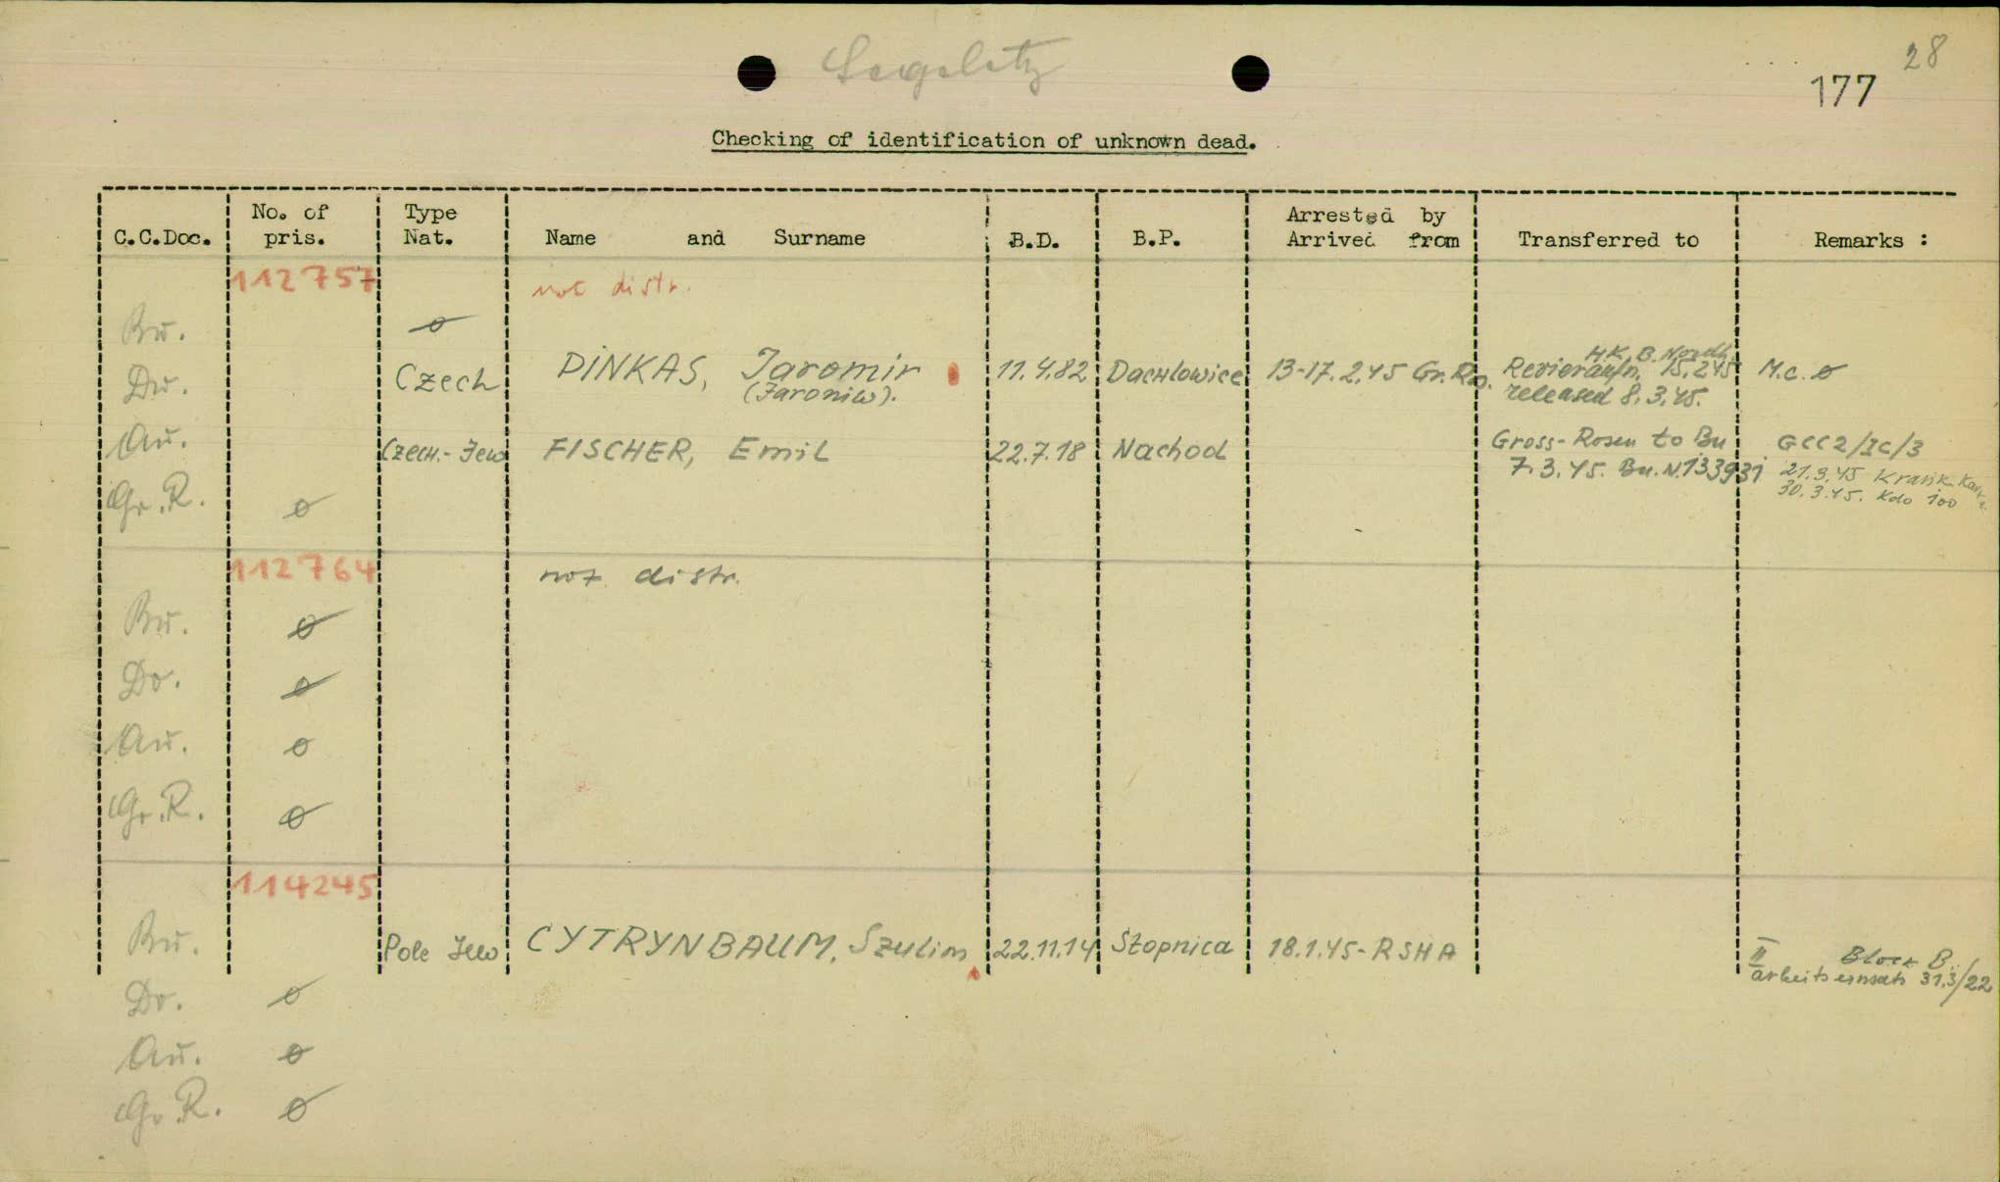 Segeletz
28
177
Checking of identification of unknown dead.
C.C.Doc. No. of pris. Type Nat. Name and Surname B.D. B.P. Arrested by Arrived from Transferred to Remarks :
112757 not distr.
Bu. ø
Do. Czech PINKAS, Jaromir 11.4.82 Dachlowice 13-17.2.45 Gr. Ro. H.K. B. Nordh. 15.2.45 M.c. ø
(Jaroniw). released 8.3.45.
Au. Czech.-Jew FISCHER, Emil 22.7.18 Nachod Gross-Rosen to Bu GCC2/IC/3
7.3.45. Bu. N. 133931 21.3.45 Krank
Gr.R. ø 30.3.45. Kdo 100
112764 not distr.
Bu. ø
Do. ø
Au. ø
Gr.R. ø
114245
Bu. Pole Jew CYTRYNBAUM, Szulim 22.11.14 Stopnica 18.1.45-RSHA II Block B.
arbeitseinsatz 31.3/22
Do. ø
Au. ø
Gr.R. ø